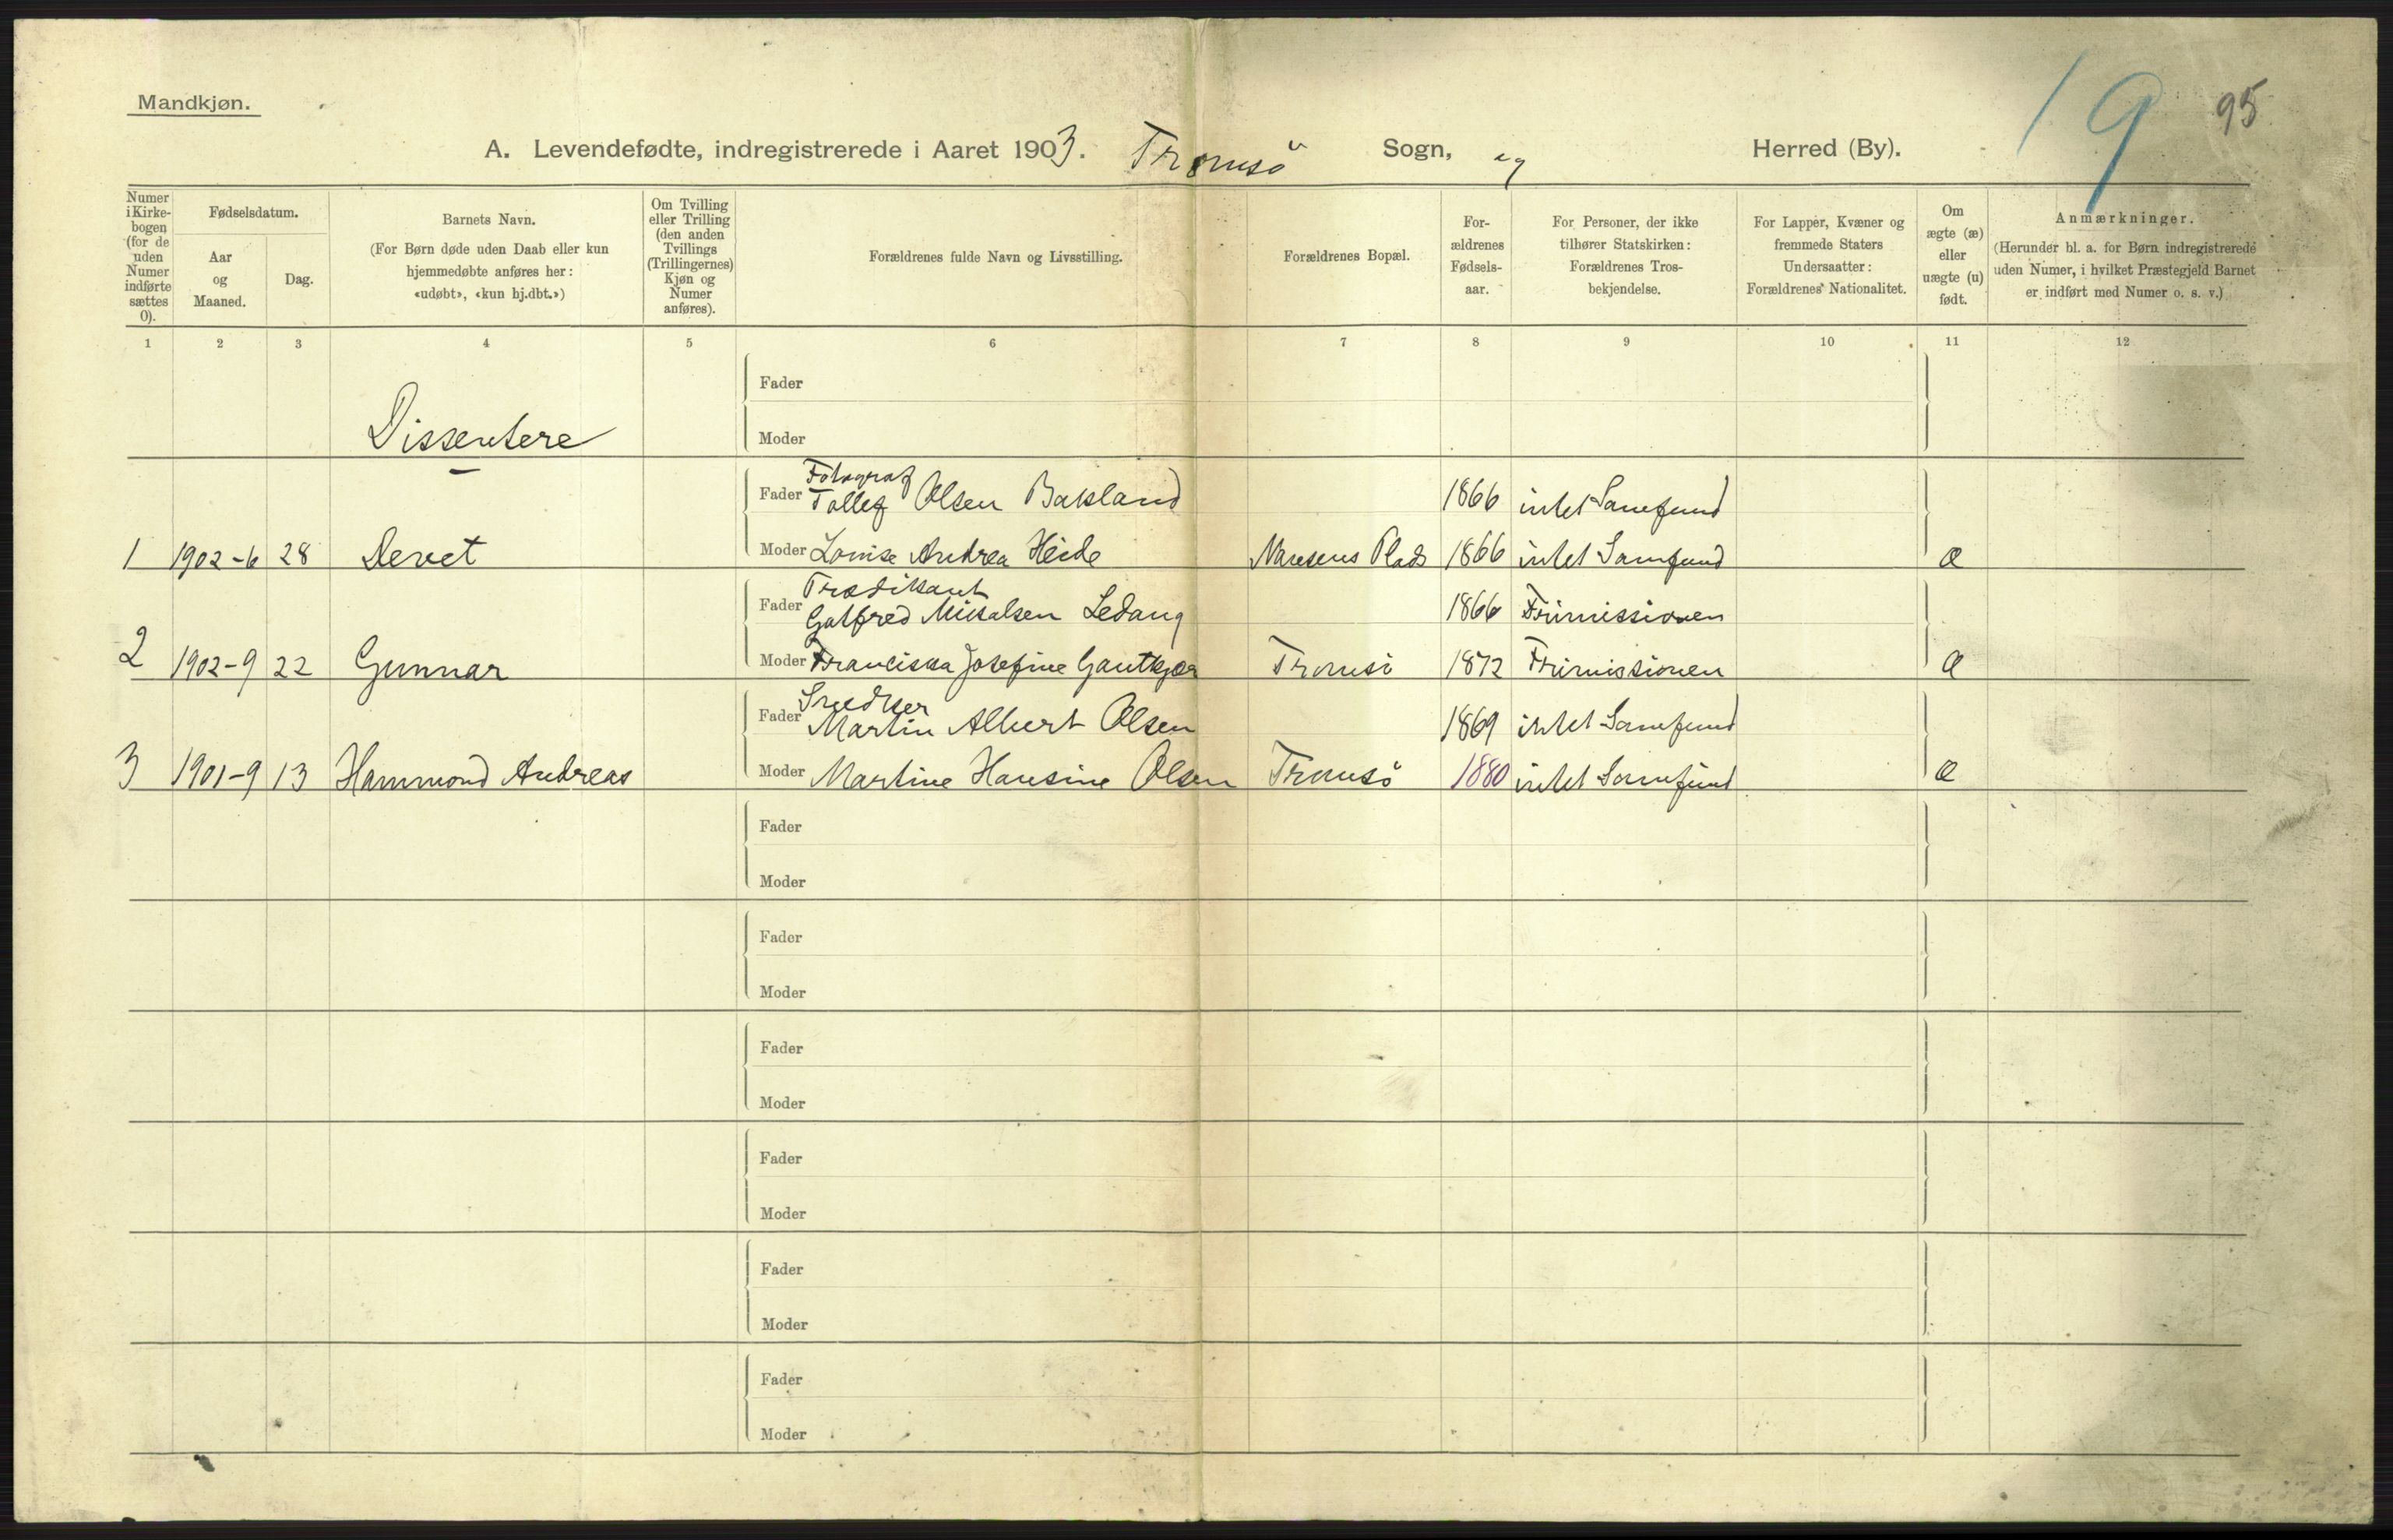 Mandkjøn.
19 95
A. Levendefødte, indregistrerede i Aaret 1903. Tromsö Sogn, Herred (By).
Numer i Kirkebogen (for de uden Numer indførte sættes 0).
Fødselsdatum.
Aar og Maaned.
Dag.
Barnets Navn.
(For Børn døde uden Daab eller kun hjemmedøbte anføres her: «udøbt», «kun hj.dbt.»)
Om Tvilling eller Trilling (den anden Tvillings (Trillingernes) Kjøn og Numer anføres).
Forældrenes fulde Navn og Livsstilling.
Forældrenes Bopæl.
Forældrenes Fødselsaar.
For Personer, der ikke tilhører Statskirken: Forældrenes Trosbekjendelse.
For Lapper, Kvæner og fremmede Staters Undersaatter: Forældrenes Nationalitet.
Om ægte (æ) eller uægte (u) født.
Anmærkninger.
(Herunder bl. a. for Børn indregistrerede uden Numer, i hvilket Præstegjeld Barnet er indført med Numer o. s. v.)
1 2 3 4 5 6 7 8 9 10 11 12
Fader
Dissentere
Moder
Fotograf
Fader Tollef Olsen Bakland 1866 intet Samfund
1 1902-6 28 Moder Louise Andrea Heide Plads 1866 intet Samfund æ
Prædikant
Fader Mikalsen Ledang 1866 Frimissionen
2 1902-9 22 Gunnar Moder Franciska Josefine Gautkjær Tromsö 1872 Frimissionen æ
Snedker
Fader Martin Albert Olsen 1869 intet Samfund
3 1901-9 13 Hammond Andreas Moder Martine Hansine Olsen Tromsö 1880 intet Samfund æ
Fader
Moder
Fader
Moder
Fader
Moder
Fader
Moder
Fader
Moder
Fader
Moder